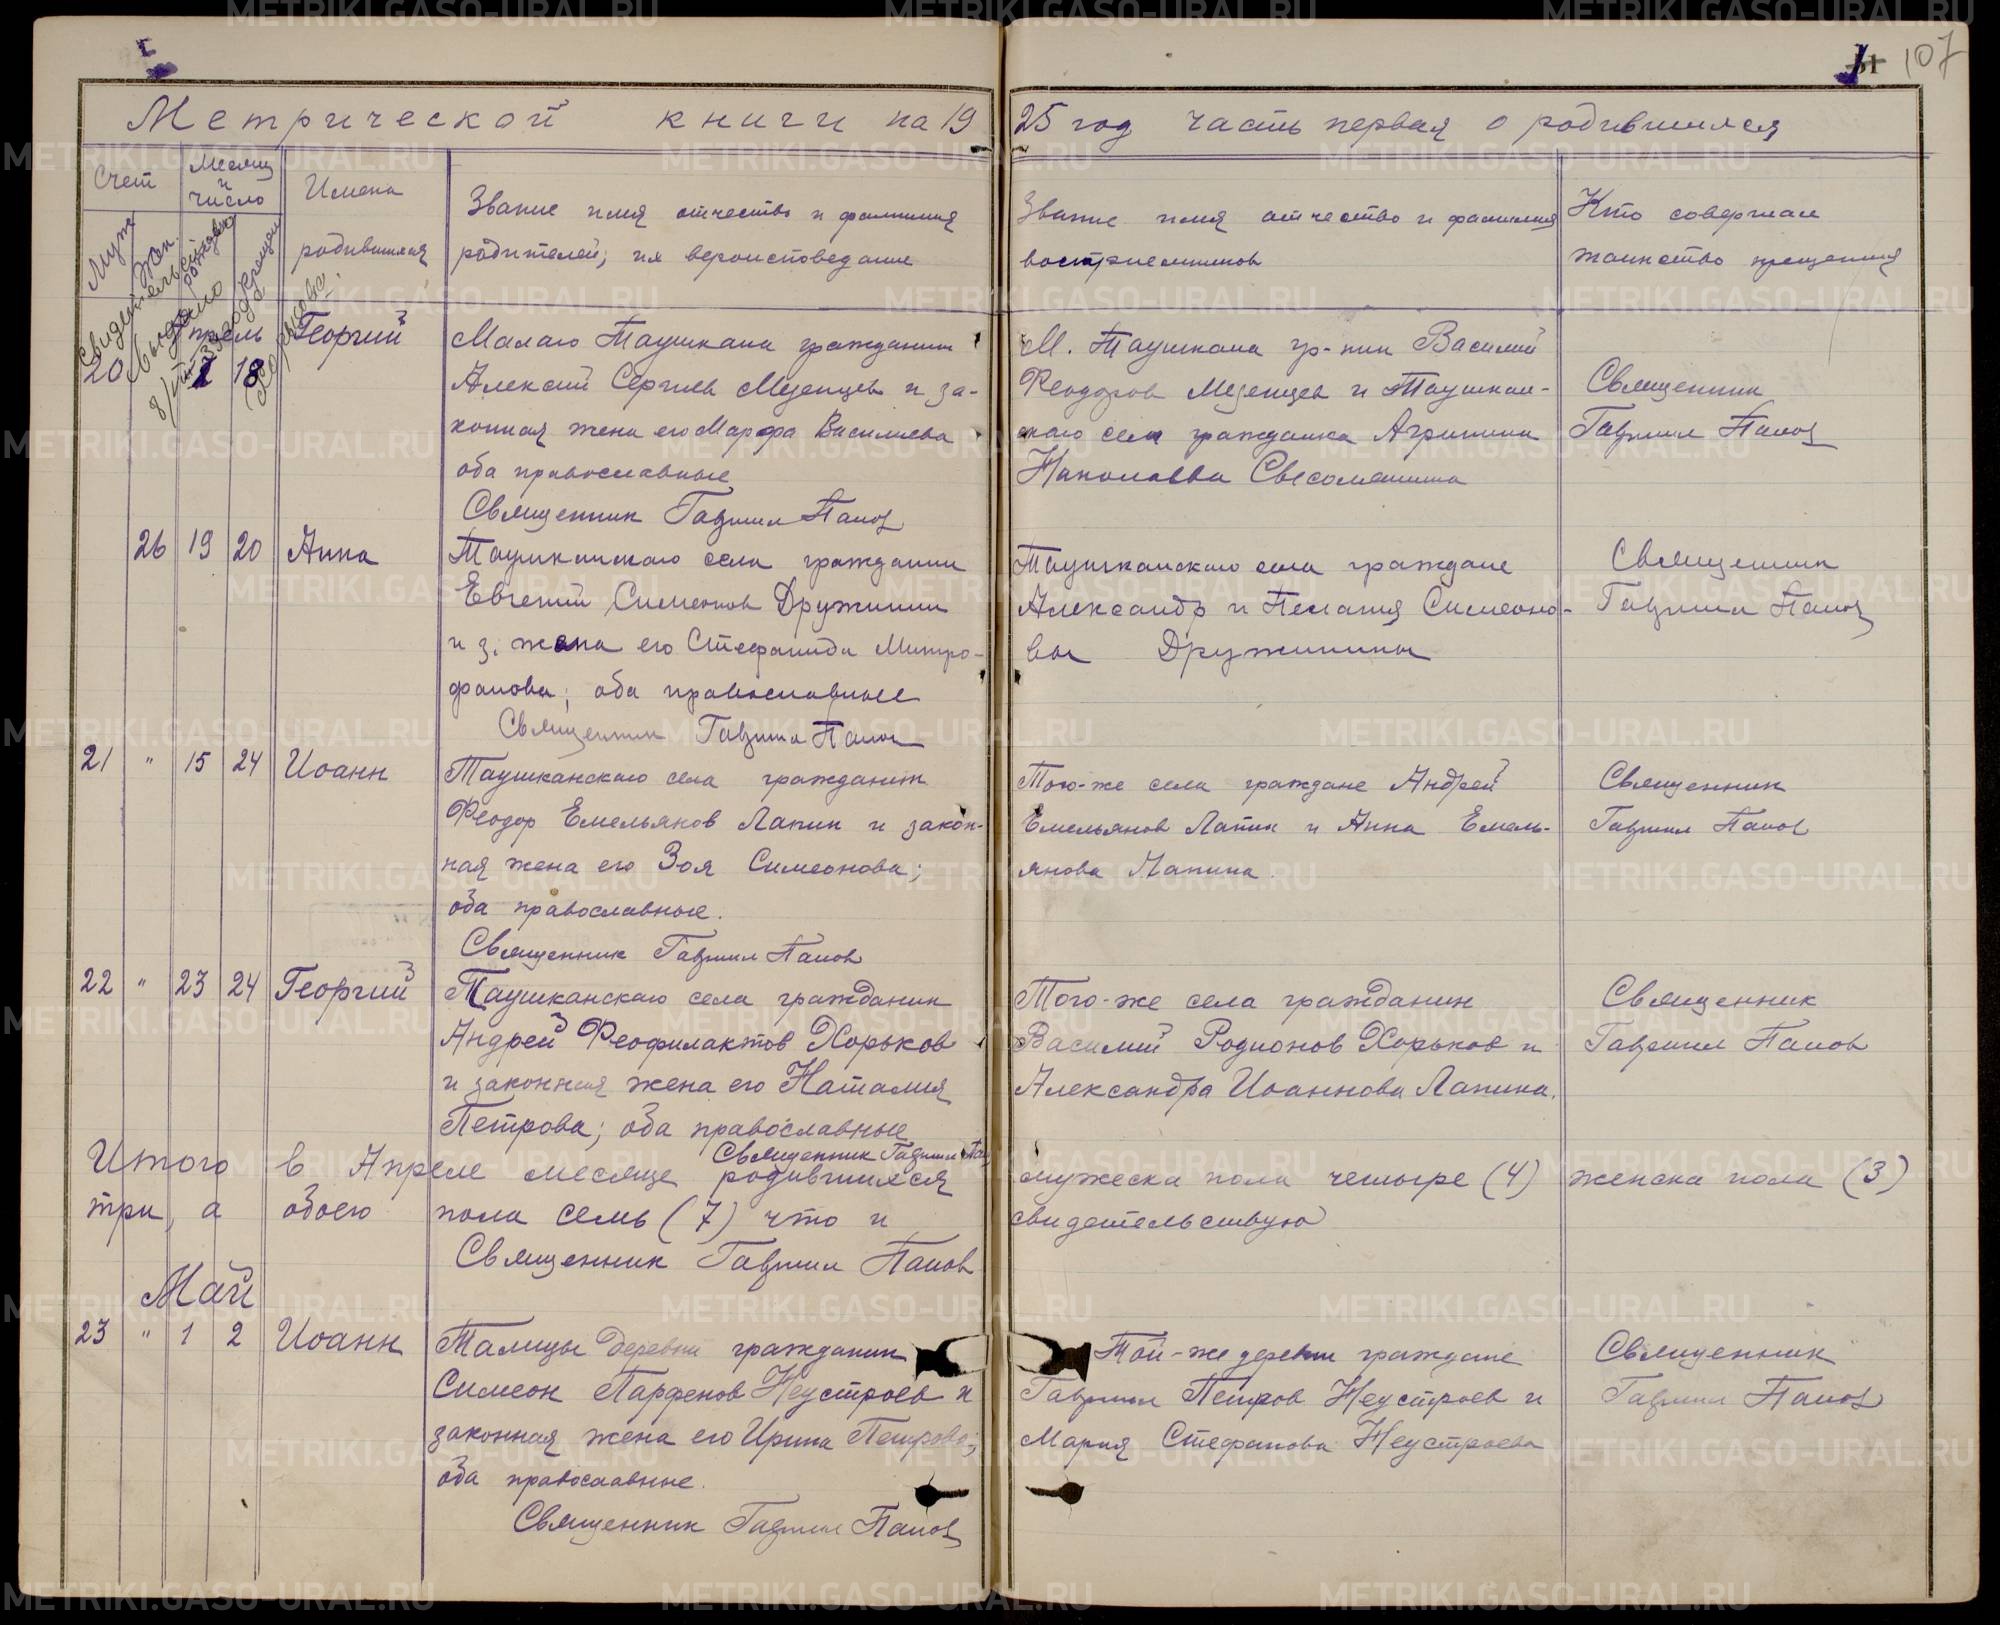 107
Метрической книги на 1925 год часть первая о родившихся
Счет
Месяц и число
Имена родившихся
Звание имя отчество и фамилия родителей; их вероисповедание
Звание имя отчество и фамилия восприемников
Кто совершал таинство крещения
Муж
Жен.
Свидетельство выдано
Апрель
20 18 Георгий
Малаго Таушкана гражданин
Алексий Сергиев Мезенцев и за-
конная жена его Марфа Василиева
оба православные
Священник Гавриил Попов
М. Таушкана гр-нин Василий
Феодоров Мезенцев и Таушкан-
скаго села гражданка Агрипина
Николаевна
Священник
Гавриил Попов
26 19 20 Анна
Таушканскаго села гражданин
Евгений Симеонов Дружинин
и з. жена его Стефанида Митро-
фанова; оба православные
Священник Гавриил Попов
Таушканскаго села граждане
Александр и Пелагия Симеоно-
вы Дружинины
Священник
Гавриил Попов
21 " 15 24 Иоанн
Таушканскаго села гражданин
Феодор Емельянов Лапин и закон-
ная жена его Зоя Симеонова;
оба православные.
Священник Гавриил Попов
Того-же села граждане Андрей
Емельянов Лапин и Анна Емель-
янова Лапина.
Священник
Гавриил Попов
22 " 23 24 Георгий
Таушканскаго села гражданин
Андрей Феофилактов Хорьков
и законная жена его Наталия
Петрова; оба православные
Священник Гавриил
Того-же села гражданин
Василий Родионов Хорьков и
Александра Иоаннова Лапина.
Священник
Гавриил Попов
Итого в Апреле месяце родившихся мужеска пола четыре (4) женска пола (3)
три, а обоего пола семь (7) что и свидетельствую
Священник Гавриил Попов
Май
23 " 1 2 Иоанн
Талицы деревни гражданин
Симеон Парфенов Неустроев и
законная жена его Ирина Петрова;
оба православные.
Священник Гавриил Попов
Той-же деревни граждане
Гавриил Петров Неустроев и
Мария Стефанова Неустроева
Священник
Гавриил Попов
METRIKI.GASO-URAL.RU